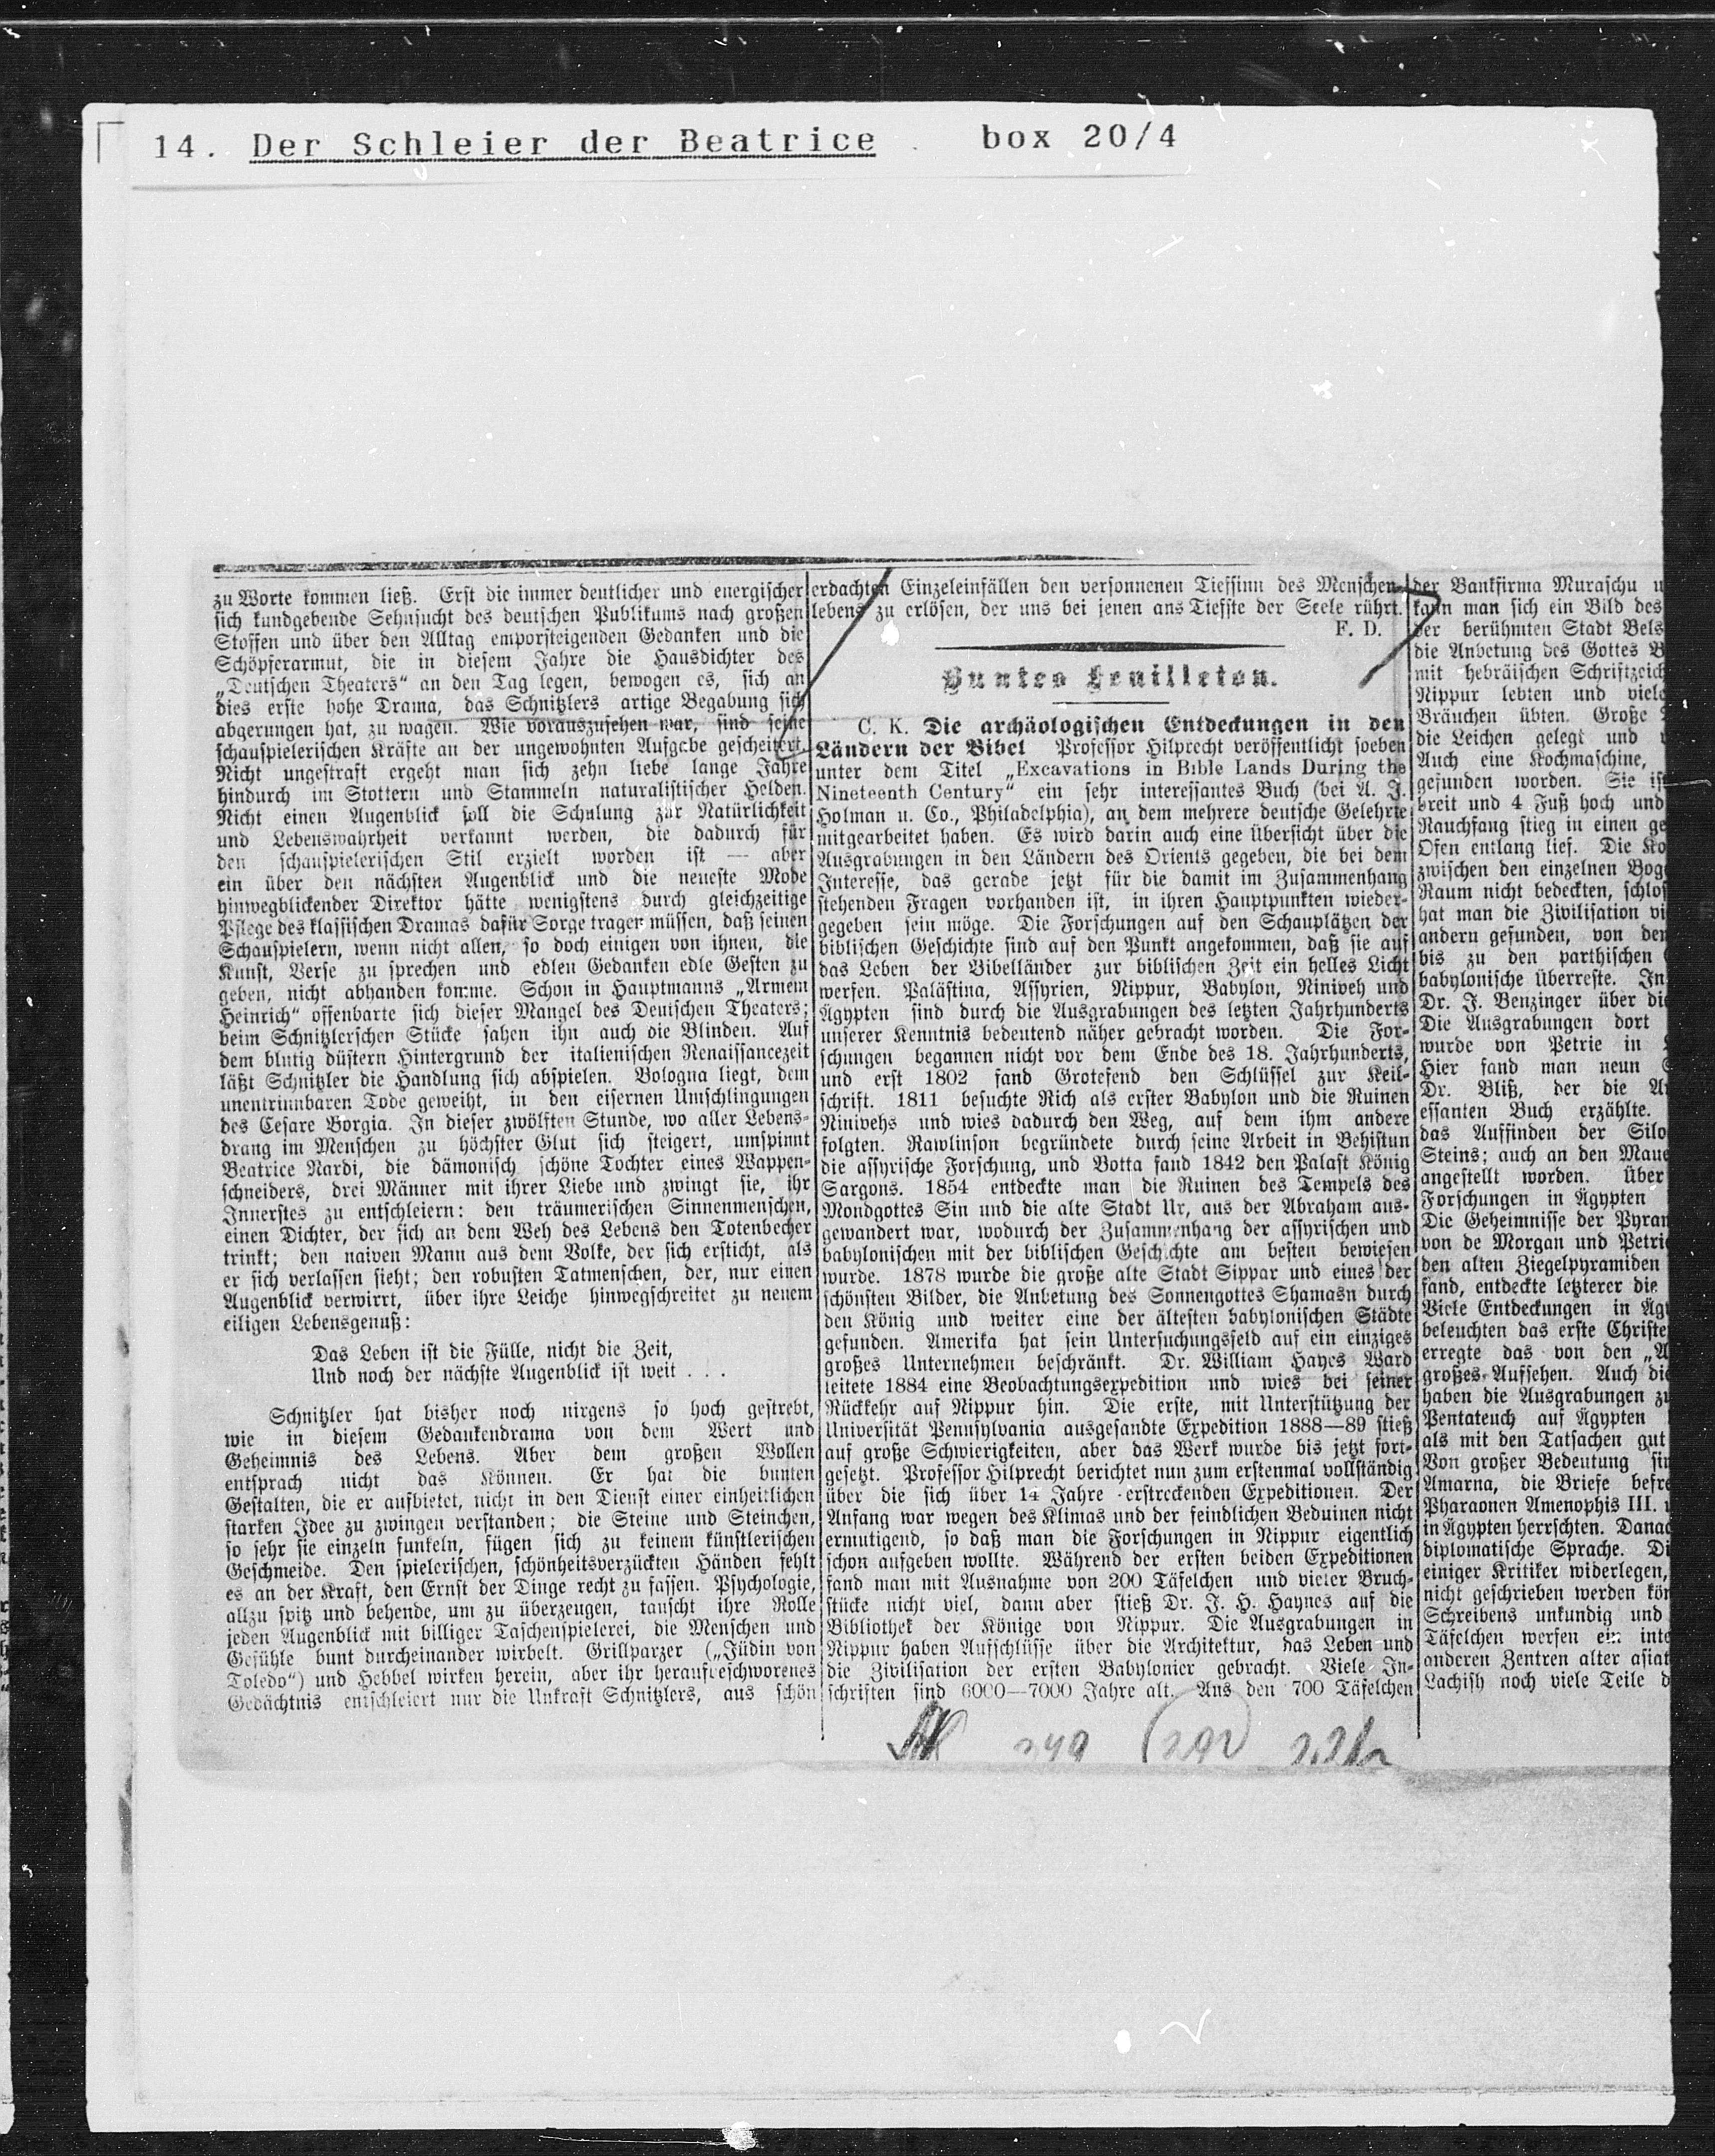 14. Der Schleier der Beatrice box 20/4
zu Worte kommen ließ. Erst die immer deutlicher und energischer
sich kundgebende Sehnsucht des deutschen Publikums nach großen
Stoffen und über den Alltag emporsteigenden Gedanken und die
Schöpferarmut, die in diesem Jahre die Hausdichter des
„Deutschen Theaters“ an den Tag legen, bewogen es, sich an
dies erste hohe Drama, das Schnitzlers artige Begabung sich
abgerungen hat, zu wagen. Wie vorauszusehen war, sind seine
schauspielerischen Kräfte an der ungewohnten Aufgabe gescheitert.
Nicht ungestraft ergeht man sich zehn liebe lange Jahre
hindurch im Stottern und Stammeln naturalistischer Helden.
Nicht einen Augenblick soll die Schulung zur Natürlichkeit
und Lebenswahrheit verkannt werden, die dadurch für
den schauspielerischen Stil erzielt worden ist — aber
ein über den nächsten Augenblick und die neueste Mode
hinwegblickender Direktor hätte wenigstens durch gleichzeitige
Pflege des klassischen Dramas dafür Sorge tragen müssen, daß seinen
Schauspielern, wenn nicht allen, so doch einigen von ihnen, die
Kunst, Verse zu sprechen und edlen Gedanken edle Gesten zu
geben, nicht abhanden komme. Schon in Hauptmanns „Armem
Heinrich“ offenbarte sich dieser Mangel des Deutschen Theaters;
beim Schnitzlerschen Stücke sahen ihn auch die Blinden. Auf
dem blutig düstern Hintergrund der italienischen Renaissancezeit
läßt Schnitzler die Handlung sich abspielen. Bologna liegt, dem
unentrinnbaren Tode geweiht, in den eisernen Umschlingungen
des Cesare Borgia. In dieser zwölften Stunde, wo aller Lebens-
drang im Menschen zu höchster Glut sich steigert, umspinnt
Beatrice Nardi, die dämonisch schöne Tochter eines Wappen-
schneiders, drei Männer mit ihrer Liebe und zwingt sie, ihr
Innerstes zu entschleiern: den träumerischen Sinnenmenschen,
einen Dichter, der sich an dem Weh des Lebens den Totenbecher
trinkt; den naiven Mann aus dem Volke, der sich ersticht, als
er sich verlassen sieht; den robusten Tatmenschen, der, nur einen
Augenblick verwirrt, über ihre Leiche hinwegschreitet zu neuem
eiligen Lebensgenuß:
Das Leben ist die Fülle, nicht die Zeit,
Und noch der nächste Augenblick ist weit . . .
Schnitzler hat bisher noch nirgens so hoch gestrebt,
wie in diesem Gedankendrama von dem Wert und
Geheimnis des Lebens. Aber dem großen Wollen
entsprach nicht das Können. Er hat die bunten
Gestalten, die er aufbietet, nicht in den Dienst einer einheitlichen
starken Idee zu zwingen verstanden; die Steine und Steinchen,
so sehr sie einzeln funkeln, fügen sich zu keinem künstlerischen
Geschmeide. Den spielerischen, schönheitsverzückten Händen fehlt
es an der Kraft, den Ernst der Dinge recht zu fassen. Psychologie,
allzu spitz und behende, um zu überzeugen, tauscht ihre Rolle
jeden Augenblick mit billiger Taschenspielerei, die Menschen und
Gefühle bunt durcheinander wirbelt. Grillparzer („Jüdin von
Toledo“) und Hebbel wirken herein, aber ihr heraufbeschworenes
Gedächtnis entschleiert nur die Unkraft Schnitzlers, aus schön
erdachten Einzeleinfällen den versonnenen Tiefsinn des Menschen-
lebens zu erlösen, der uns bei jenen ans Tiefste der Seele rührt.
F. D.
Buntes Feuilleton.
C. K. Die archäologischen Entdeckungen in den
Ländern der Bibel Professor Hilprecht veröffentlicht soeben
unter dem Titel „Excavations in Bible Lands During the
Nineteenth Century“ ein sehr interessantes Buch (bei A. J.
Holman u. Co., Philadelphia), an dem mehrere deutsche Gelehrte
mitgearbeitet haben. Es wird darin auch eine Übersicht über die
Ausgrabungen in den Ländern des Orients gegeben, die bei dem
Interesse, das gerade jetzt für die damit im Zusammenhang
stehenden Fragen vorhanden ist, in ihren Hauptpunkten wieder-
gegeben sein möge. Die Forschungen auf den Schauplätzen der
biblischen Geschichte sind auf den Punkt angekommen, daß sie auf
das Leben der Bibelländer zur biblischen Zeit ein helles Licht
werfen. Palästina, Assyrien, Nippur, Babylon, Niniveh und
Ägypten sind durch die Ausgrabungen des letzten Jahrhunderts
unserer Kenntnis bedeutend näher gebracht worden. Die For-
schungen begannen nicht vor dem Ende des 18. Jahrhunderts,
und erst 1802 fand Grotefend den Schlüssel zur Keil-
schrift. 1811 besuchte Rich als erster Babylon und die Ruinen
Ninivehs und wies dadurch den Weg, auf dem ihm andere
folgten. Rawlinson begründete durch seine Arbeit in Behistun
die assyrische Forschung, und Botta fand 1842 den Palast König
Sargons. 1854 entdeckte man die Ruinen des Tempels des
Mondgottes Sin und die alte Stadt Ur, aus der Abraham aus-
gewandert war, wodurch der Zusammenhang der assyrischen und
babylonischen mit der biblischen Geschichte am besten bewiesen
wurde. 1878 wurde die große alte Stadt Sippar und eines der
schönsten Bilder, die Anbetung des Sonnengottes Shamasn durch
den König und weiter eine der ältesten babylonischen Städte
gefunden. Amerika hat sein Untersuchungsfeld auf ein einziges
großes Unternehmen beschränkt. Dr. William Hayes Ward
leitete 1884 eine Beobachtungsexpedition und wies bei seiner
Rückkehr auf Nippur hin. Die erste, mit Unterstützung der
Universität Pennsylvania ausgesandte Expedition 1888—89 stieß
auf große Schwierigkeiten, aber das Werk wurde bis jetzt fort-
gesetzt. Professor Hilprecht berichtet nun zum erstenmal vollständig
über die sich über 14 Jahre erstreckenden Expeditionen. Der
Anfang war wegen des Klimas und der feindlichen Beduinen nicht
ermutigend, so daß man die Forschungen in Nippur eigentlich
schon aufgeben wollte. Während der ersten beiden Expeditionen
fand man mit Ausnahme von 200 Täfelchen und vieler Bruch-
stücke nicht viel, dann aber stieß Dr. J. H. Haynes auf die
Bibliothek der Könige von Nippur. Die Ausgrabungen in
Nippur haben Aufschlüsse über die Architektur, das Leben und
die Zivilisation der ersten Babylonier gebracht. Viele In-
schriften sind 6000—7000 Jahre alt. Aus den 700 Täfelchen
der Bankfirma Muraschu u
kann man sich ein Bild des
der berühmten Stadt Bels
die Anbetung des Gottes B
mit hebräischen Schriftzeich
Nippur lebten und viele
Bräuchen übten. Große
die Leichen gelegt und
Auch eine Kochmaschine,
gefunden worden. Sie ist
breit und 4 Fuß hoch und
Rauchfang stieg in einen ge
Ofen entlang lief. Die Ko
zwischen den einzelnen Bog
Raum nicht bedeckten, schlos
hat man die Zivilisation vi
andern gefunden, von den
bis zu den parthischen
babylonische Überreste. In
Dr. J. Benzinger über die
Die Ausgrabungen dort
wurde von Petrie in
Hier fand man neun
Dr. Bliß, der die A
essanten Buch erzählte.
das Auffinden der Silo
Steins; auch an den Maue
angestellt worden. Über
Forschungen in Ägypten
Die Geheimnisse der Pyram
von de Morgan und Petrie
den alten Ziegelpyramiden
fand, entdeckte letzterer die
Viele Entdeckungen in Äg
beleuchten das erste Christe
erregte das von den „A
großes Aufsehen. Auch die
haben die Ausgrabungen zu
Pentateuch auf Ägypten
als mit den Tatsachen gut
Von großer Bedeutung sin
Amarna, die Briefe befre
Pharaonen Amenophis III. u
in Ägypten herrschten. Danac
diplomatische Sprache. Di
einiger Kritiker widerlegen,
nicht geschrieben werden kön
Schreibens unkundig und
Täfelchen werfen ein inte
anderen Zentren alter asiat
Lachish noch viele Teile d